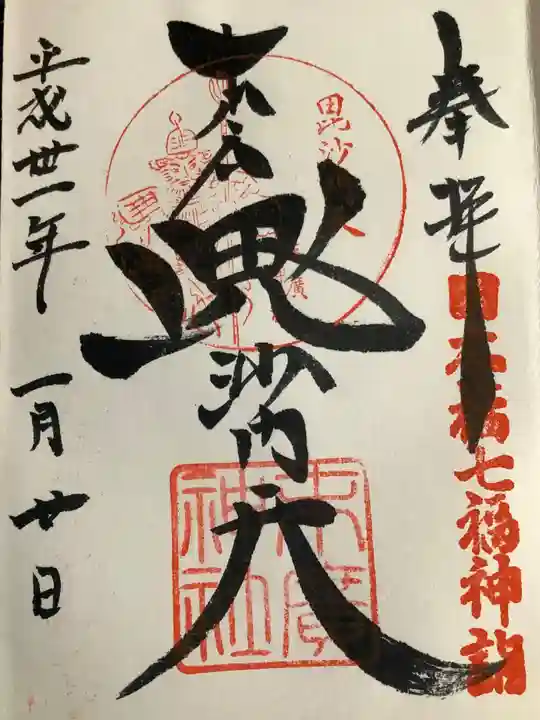 奉拝
日本橋七福神詣
末広
毘沙門天
毘沙
廣
末廣
神社
平成卅一年 一月廿日